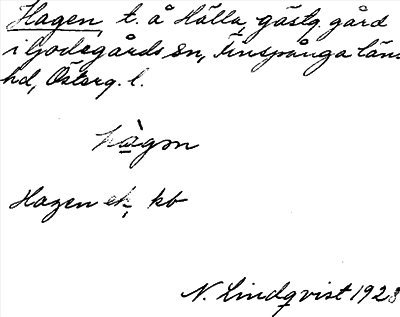 Hagen, t. å Hälla, gästg. gård
i Godegårds sn, Finspånga läns
hd, Österg. l.
hàgən
Hagen ek, kb
N. Lindqvist 1923